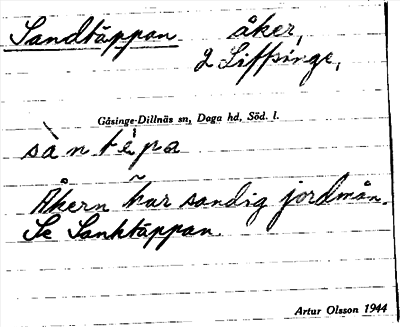 Sandtäppan åker,
2 Lifsinge,
Gåsinge-Dillnäs sn, Daga hd, Söd. l.
sàntépa
Åkern har sandig jordmån.
Se Sanktäppan.
Artur Olsson 1944